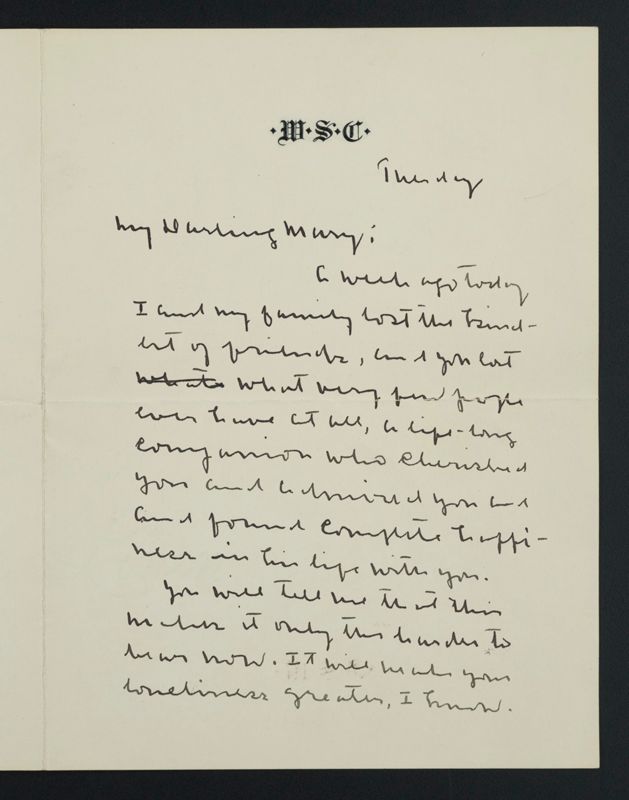 ·W·S·C·
Tuesday
My Darling Mary:
A week ago today
I and my family lost the kind-
est of friends, and you lost
what very few people
ever have at all, a life-long
companion who cherished
you and admired you and
and found complete happi-
ness in his life with you.
You will tell me that this
makes it only the harder to
bear now. It will make your
loneliness greater, I know.